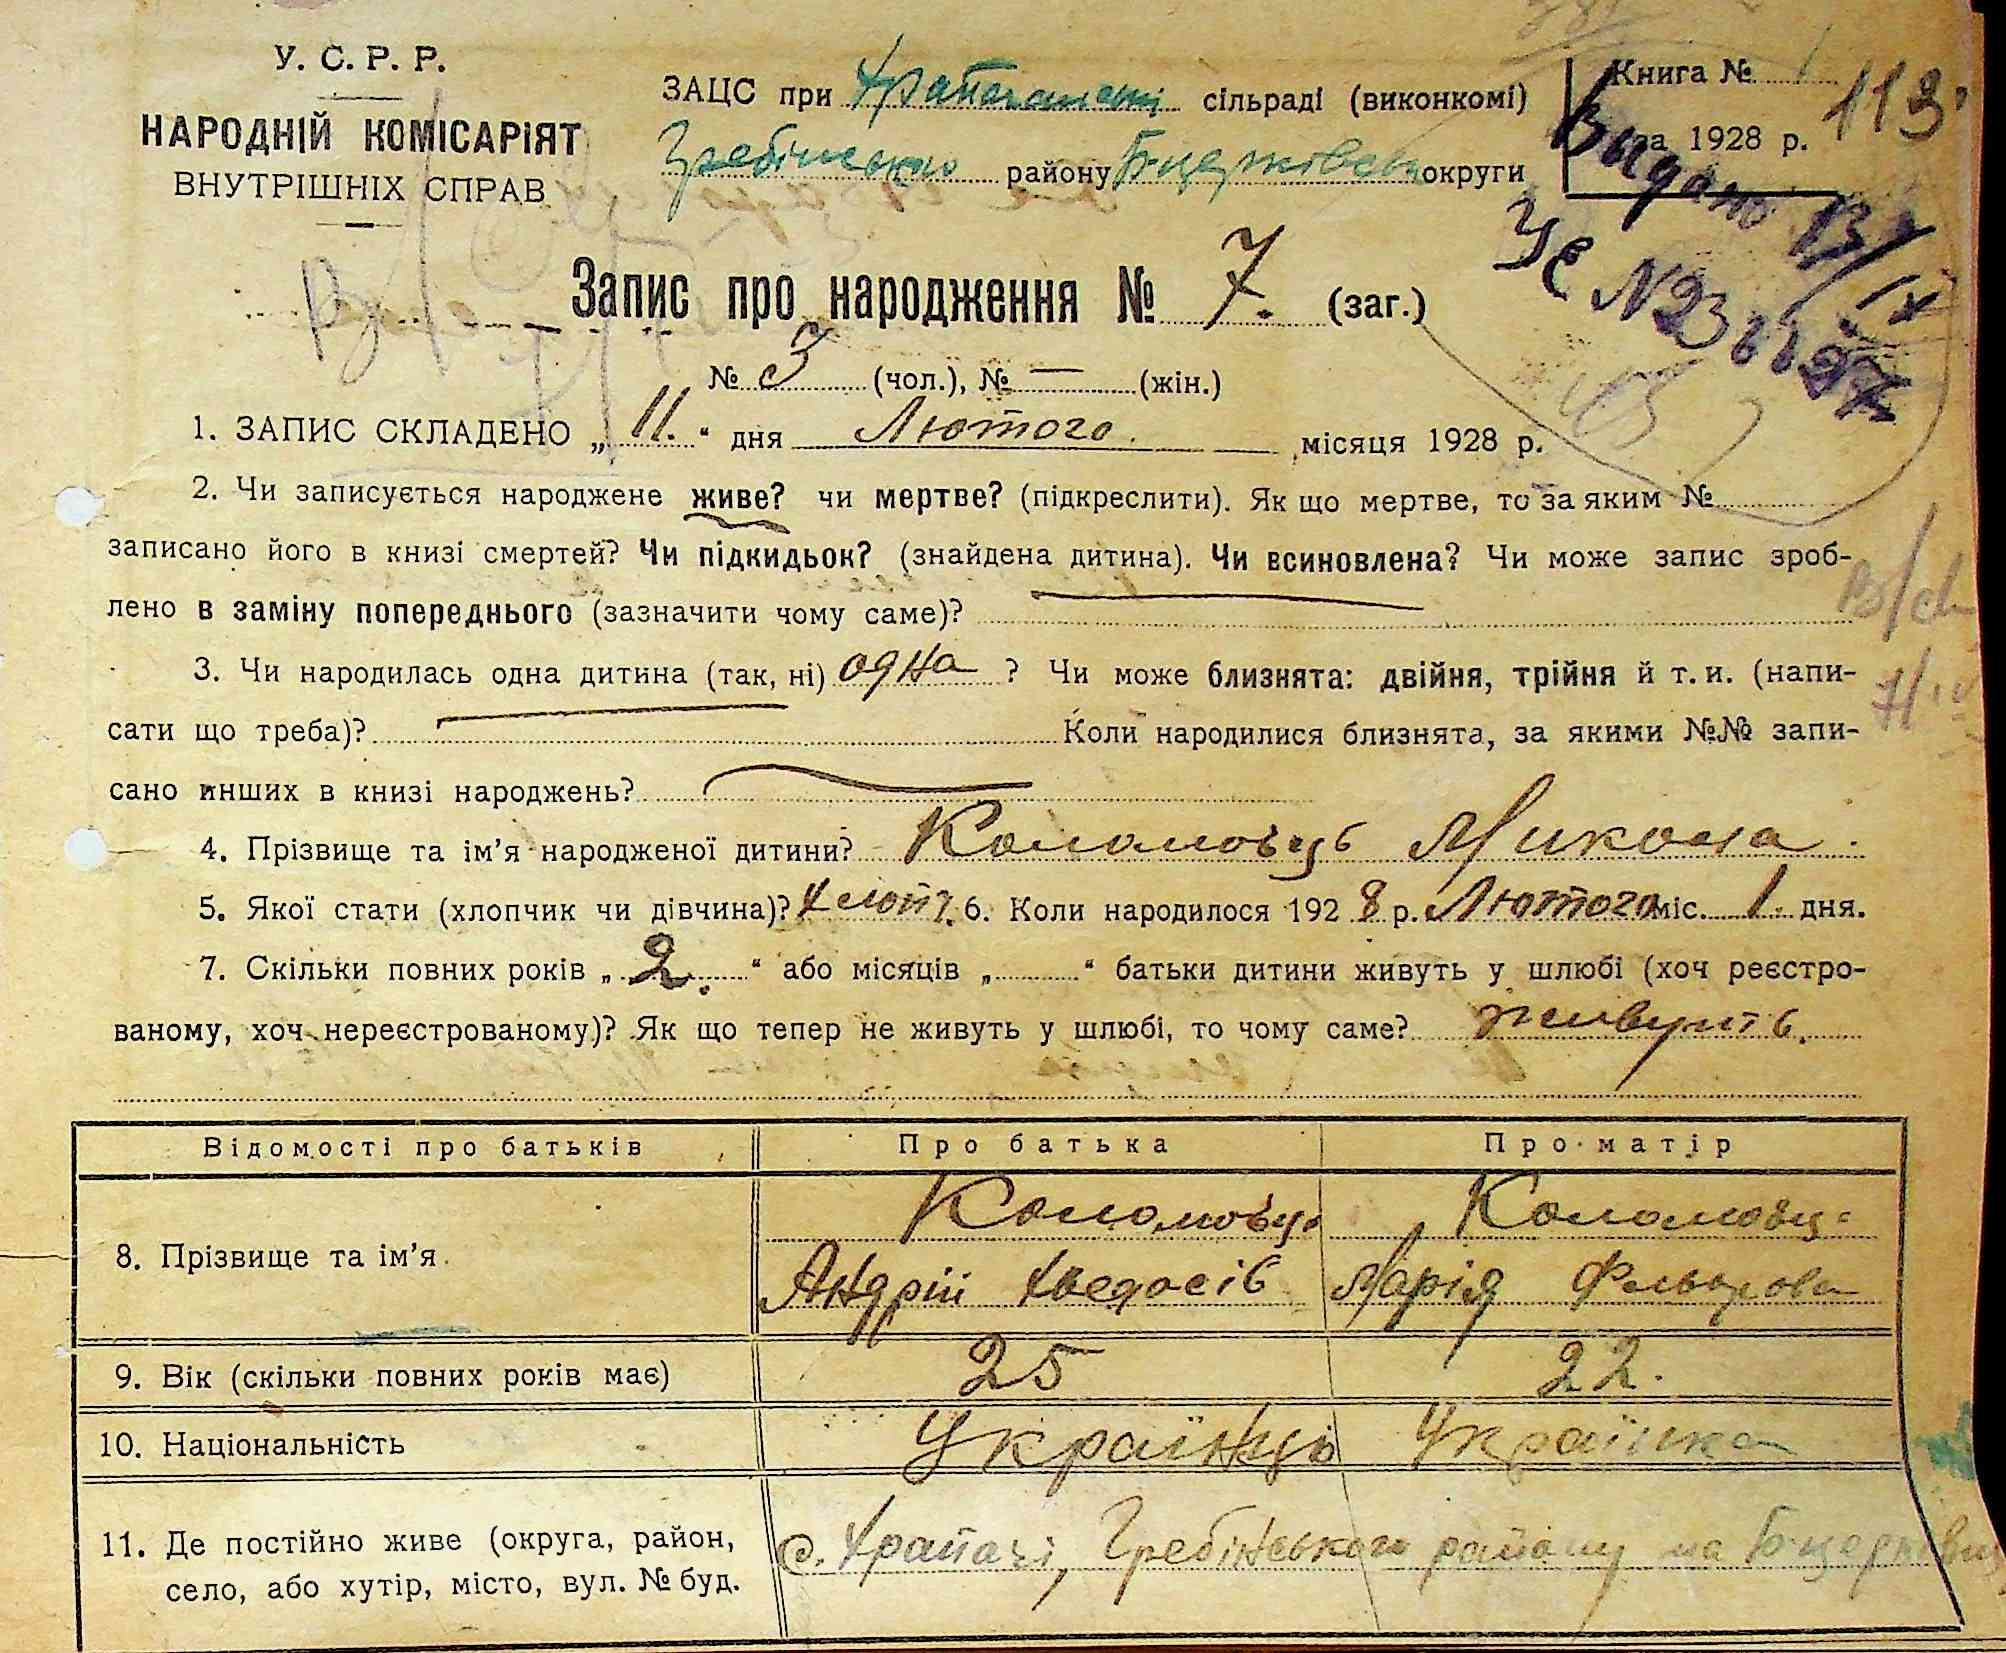 У. С. Р. Р.
НАРОДНІЙ КОМІСАРІЯТ
ВНУТРІШНІХ СПРАВ
ЗАЦС при сільраді (виконкомі)
району Б-церківськ округи
Книга № 1
за 1928 р.
113
Выдано 13/IX
Запис про народження № 7. (заг.)
№ 3 (чол.), № — (жін.)
1. ЗАПИС СКЛАДЕНО „ 11. “ дня Лютого місяця 1928 р.
2. Чи записується народжене живе? чи мертве? (підкреслити). Як що мертве, то за яким №
записано його в книзі смертей? Чи підкидьок? (знайдена дитина). Чи всиновлена? Чи може запис зроб-
лено в заміну попереднього (зазначити чому саме)?
3. Чи народилась одна дитина (так, ні) одна ? Чи може близнята: двійня, трійня й т. и. (напи-
сати що треба)? Коли народилися близнята, за якими №№ запи-
сано инших в книзі народжень?
4. Прізвище та ім’я народженої дитини? Коломовць Микола.
5. Якої стати (хлопчик чи дівчина)? хлопч. 6. Коли народилося 1928 р. Лютого міс. 1. дня.
7. Скільки повних років „ 2. “ або місяців „ “ батьки дитини живуть у шлюбі (хоч реєстро-
ваному, хоч нереєстрованому)? Як що тепер не живуть у шлюбі, то чому саме? живуть.
Відомості про батьків Про батька Про матір
8. Прізвище та ім’я
Коломовць Коломовць
Андрій Хведосів Марія
9. Вік (скільки повних років має) 25 22.
10. Національність Українць Українка
11. Де постійно живе (округа, район,
село, або хутір, місто, вул. № буд.
с. Храпачі, Гребінського району на Б-церківщ